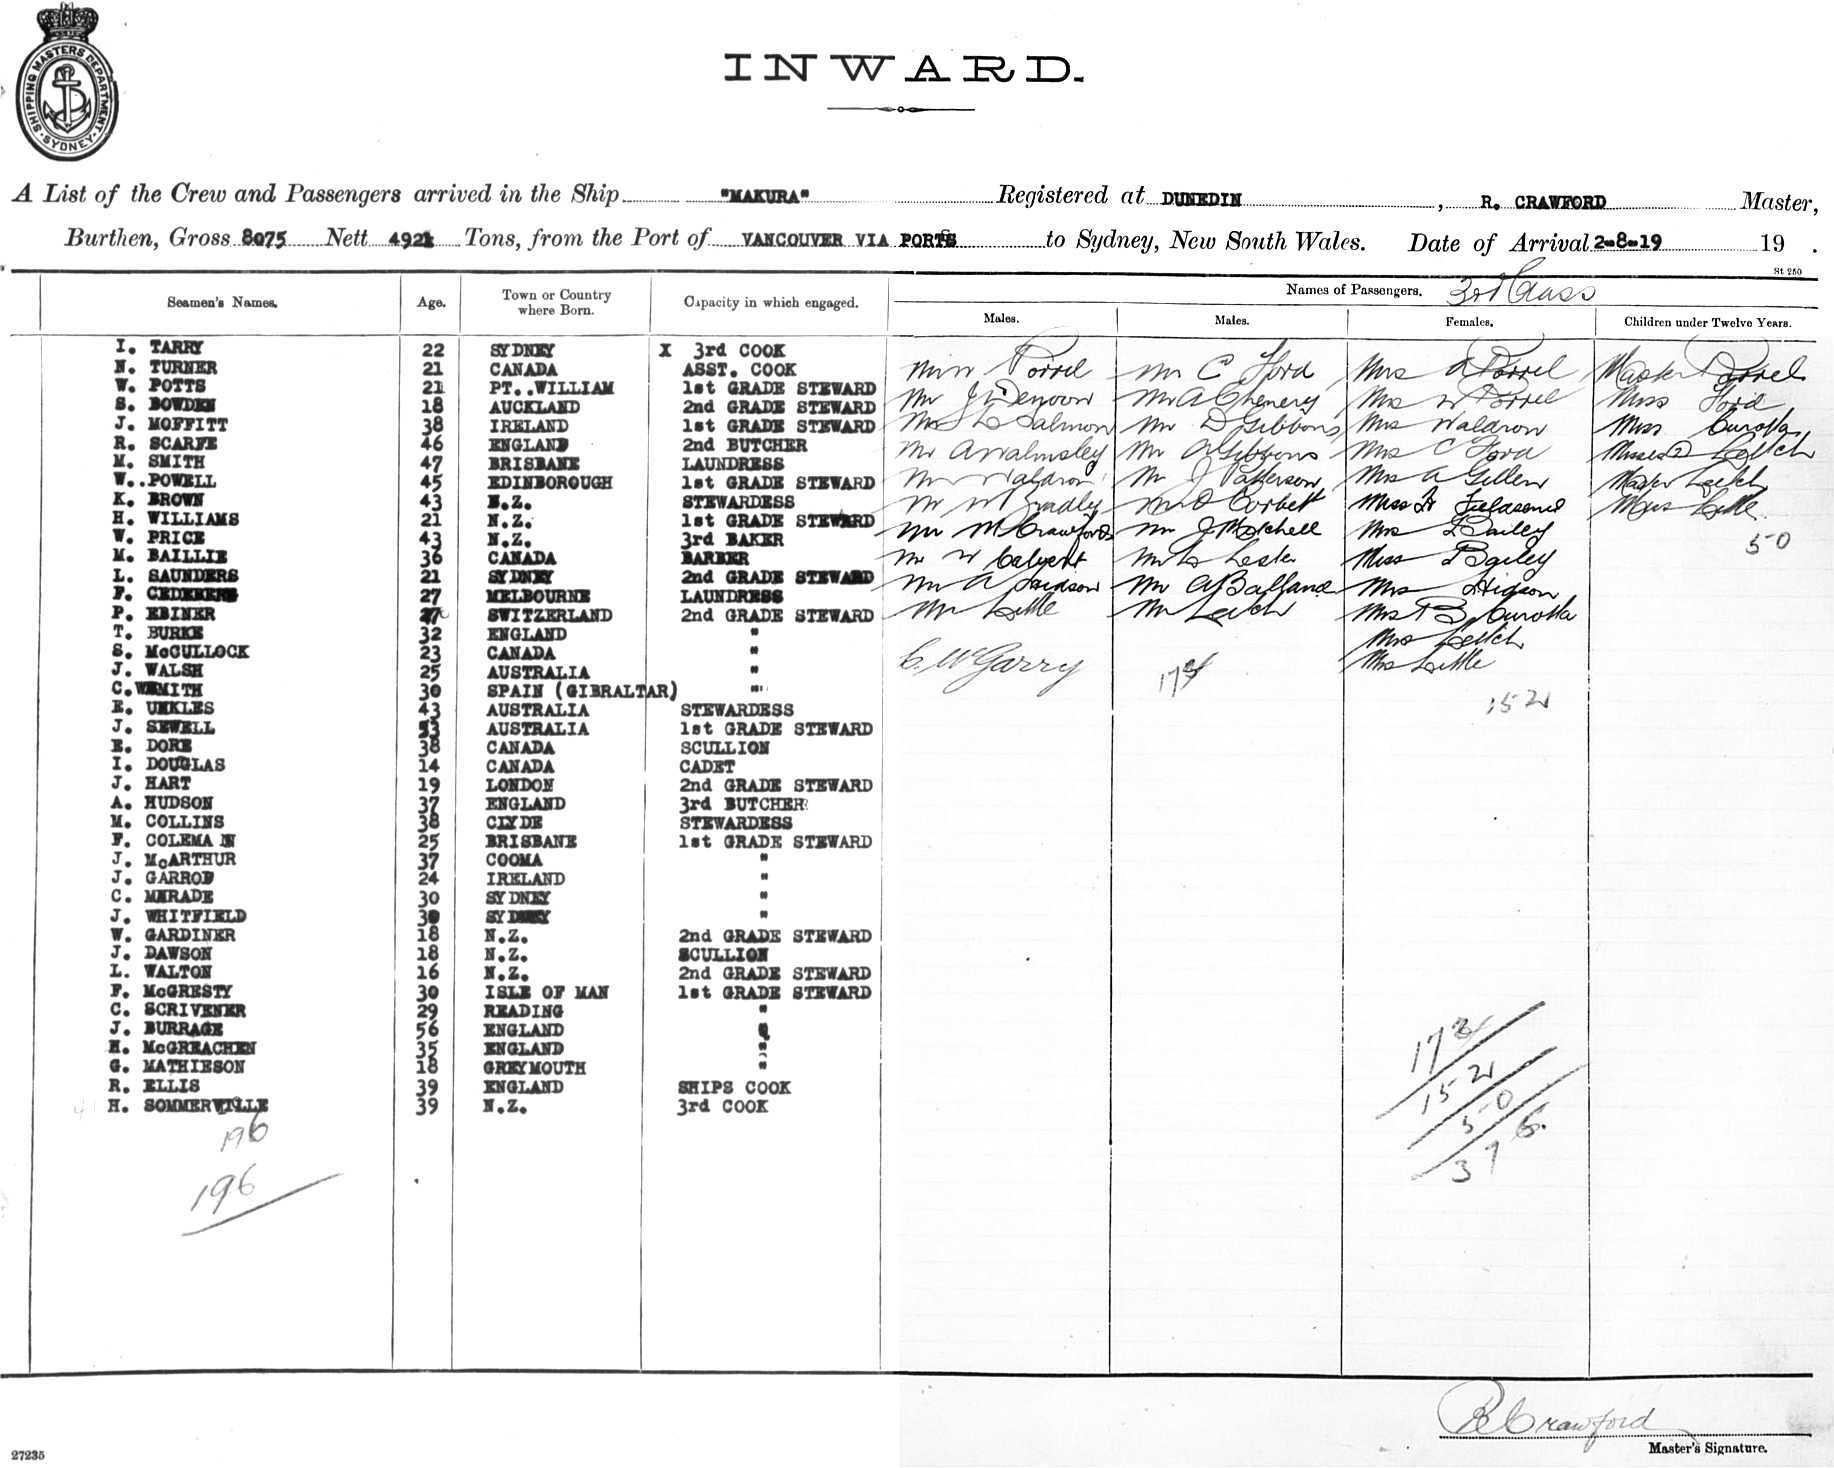 SHIPPING MASTERS DEPARTMENT SYDNEY
INWARD.
A List of the Crew and Passengers arrived in the Ship "MAKURA" Registered at DUNEDIN, R. CRAWFORD Master,
Burthen, Gross 8075 Nett 4921 Tons, from the Port of VANCOUVER VIA PORTS to Sydney, New South Wales. Date of Arrival 2-8-19 19 .
St 250
Seamen's Names. Age. Town or Country where Born. Capacity in which engaged. Names of Passengers. 3rd Class
Males. Males. Females. Children under Twelve Years.
I. TARRY 22 SYDNEY X 3rd COOK
N. TURNER 21 CANADA ASST. COOK
W. POTTS 21 PT..WILLIAM 1st GRADE STEWARD
S. BOWDEN 18 AUCKLAND 2nd GRADE STEWARD
J. MOFFITT 38 IRELAND 1st GRADE STEWARD
R. SCARFE 46 ENGLAND 2nd BUTCHER
M. SMITH 47 BRISBANE LAUNDRESS
W..POWELL 45 EDINBOROUGH 1st GRADE STEWARD
K. BROWN 43 N.Z. STEWARDESS
H. WILLIAMS 21 N.Z. 1st GRADE STEWARD
W. PRICE 43 N.Z. 3rd BAKER
M. BAILLIE 36 CANADA BARBER
L. SAUNDERS 21 SYDNEY 2nd GRADE STEWARD
F. 27 MELBOURNE LAUNDRESS
P. EBINER SWITZERLAND 2nd GRADE STEWARD
T. BURKE 32 ENGLAND "
S. McCULLOCK 23 CANADA "
J. WALSH 25 AUSTRALIA "
C.W SMITH 30 SPAIN (GIBRALTAR) "
E. UNKLES 43 AUSTRALIA STEWARDESS
J. SEWELL AUSTRALIA 1st GRADE STEWARD
E. DORE 38 CANADA SCULLION
I. DOUGLAS 14 CANADA CADET
J. HART 19 LONDON 2nd GRADE STEWARD
A. HUDSON 37 ENGLAND 3rd BUTCHER
M. COLLINS 38 CLYDE STEWARDESS
F. COLEMAN 25 BRISBANE 1st GRADE STEWARD
J. McARTHUR 37 COOMA "
J. GARROD 24 IRELAND "
C. MERADE 30 SYDNEY "
J. WHITFIELD 30 SYDNEY "
W. GARDINER 18 N.Z. 2nd GRADE STEWARD
J. DAWSON 18 N.Z. SCULLION
L. WALTON 16 N.Z. 2nd GRADE STEWARD
F. McGRESTY 30 ISLE OF MAN 1st GRADE STEWARD
C. SCRIVENER 29 READING "
J. BURRAGE 56 ENGLAND "
H. McGREACHEN 35 ENGLAND "
G. MATHIESON 18 GREYMOUTH "
R. ELLIS 39 ENGLAND SHIPS COOK
H. SOMMERVILLE 39 N.Z. 3rd COOK
196
196
Mr W Porrel Mr C Ford Mrs A Porrel Master Porrel
Mr J Denoon Mr A Chenery Mrs W Porrel Miss Ford
Mr L Salmon Mr D Gibbons Mrs Waldron Miss Curotta
Mr A Walmsley Mr A Gibbons Mrs C Ford Misses 2 Leitch
Mr Waldron Mr J Patterson Mrs A Gillen Master Leitch
Mr W Bradley Mr D Corbett Miss Little
Mr M Crawford Mr J Mitchell Mrs Bailey
Mr W Calvert Mr L Lester Miss Bailey
Mr A Judson Mr A Balland Mrs Higson
Mr Little Mr Leitch Mrs B Curotta
Mrs Leitch
C. McGarry Mrs Little
152
50
173
152
50
376.
R Crawford
Master's Signature.
27235